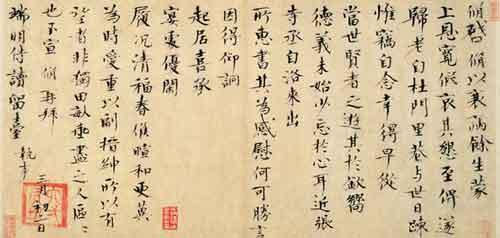 脩啟脩以衰病餘生蒙
上恩寬假哀其懇至俾遂
歸老自杜門里巷與世日疎
惟竊自念幸得早從
當世賢者之遊其於欽嚮
德義未始少忘於心耳近張
寺丞自洛來出
所惠書其為感慰何可勝言
因得仰詢
起居喜承
宴處優閒
履況清福春候暄和更冀
為時愛重以副搢紳所以有
望者非獨田畝垂盡之人區區
也不宣脩再拜
端明侍讀留臺執事
三月初二日